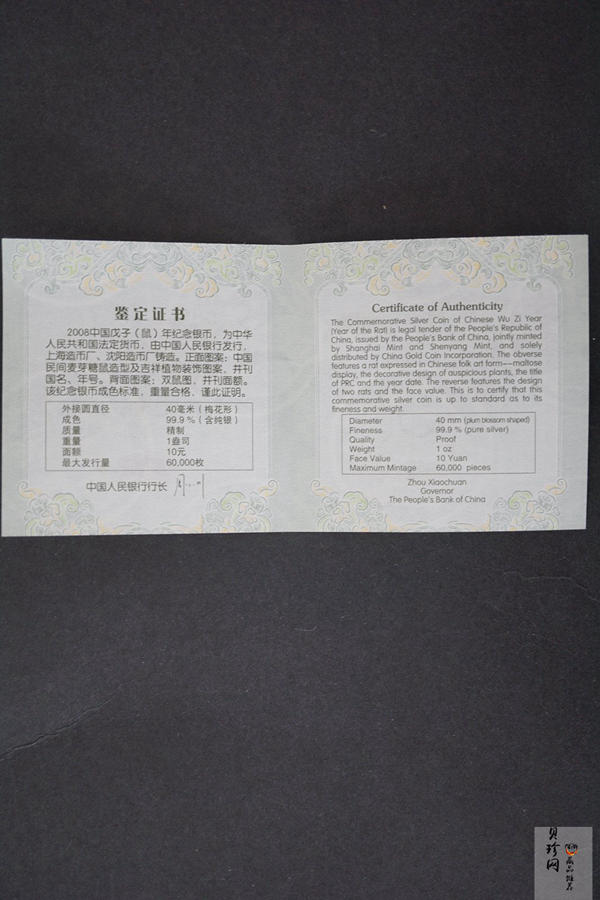 鉴定证书
2008中国戊子（鼠）年纪念银币，为中华
人民共和国法定货币，由中国人民银行发行，
上海造币厂、沈阳造币厂铸造。正面图案：中国
民间麦芽糖鼠造型及吉祥植物装饰图案，并刊
国名、年号。背面图案：双鼠图，并刊面额。
该纪念银币成色标准，重量合格，谨此证明。
外接圆直径 40毫米（梅花形）
成色 99.9%（含纯银）
质量 精制
重量 1盎司
面额 10元
最大发行量 60,000枚
中国人民银行行长
Certificate of Authenticity
The Commemorative Silver Coin of Chinese Wu Zi Year
(Year of the Rat) is legal tender of the People's Republic of
China, issued by the People's Bank of China, jointly minted
by Shanghai Mint and Shenyang Mint, and solely
distributed by China Gold Coin Incorporation. The obverse
features a rat expressed in Chinese folk art form——maltose
display, the decorative design of auspicious plants, the title
of PRC and the year date. The reverse features the design
of two rats and the face value. This is to certify that this
commemorative silver coin is up to standard as to its
fineness and weight.
Diameter 40 mm (plum blossom shaped)
Fineness 99.9 % (pure silver)
Quality Proof
Weight 1 oz
Face Value 10 Yuan
Maximum Mintage 60,000 pieces
Zhou Xiaochuan
Governor
The People's Bank of China
贝珍网
藏品推荐